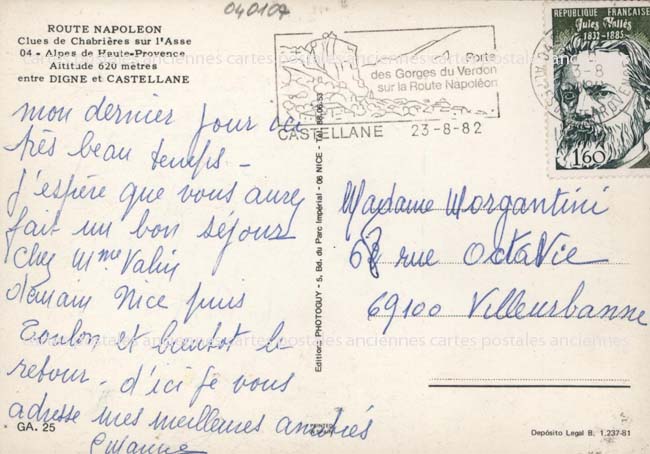 040104
ROUTE NAPOLEON
Clues de Chabrières sur l'Asse
04 - Alpes de Haute-Provence
Altitude 620 mètres
entre DIGNE et CASTELLANE
mon dernier jour ici
très beau temps -
J'espère que vous aurez
fait un bon séjour
chez Mme Valin
demain Nice puis
Toulon et bientot le
retour - d'ici je vous
adresse mes meilleures amitiés
Suzanne
GA. 25
Edition PHOTOGUY - 5, Bd. du Parc Impérial - 06 NICE - Tél.
Porte
des Gorges du Verdon
sur la Route Napoléon
CASTELLANE 23-8-82
REPUBLIQUE FRANÇAISE
Jules Vallès
1832-1885
1,60
23-8
Madame Morgantini
68 rue Octavie
69100 Villeurbanne
Depósito Legal B. 1.237-81
cartes postales anciennes cartes postales anciennes cartes postales anciennes
cartes postales anciennes cartes postales anciennes cartes postales anciennes